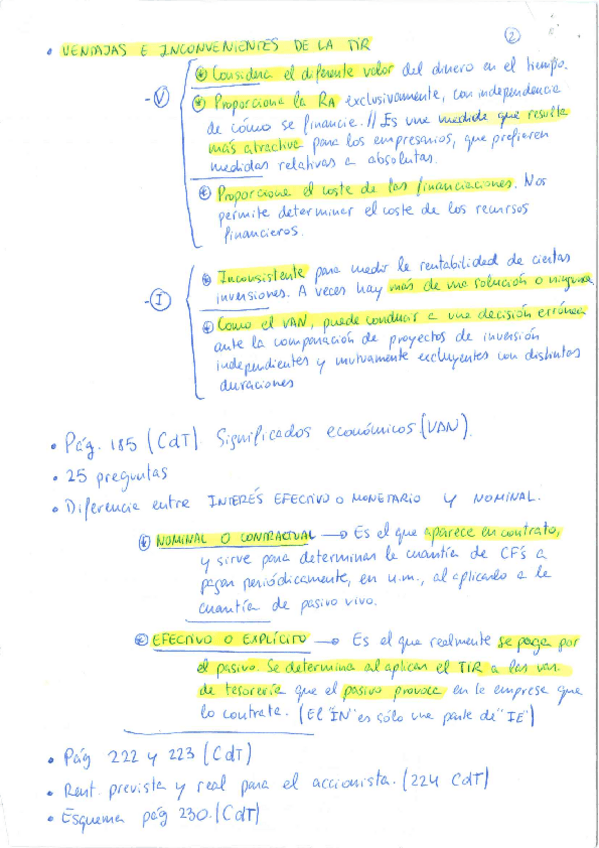 2
• VENTAJAS E INCONVENIENTES DE LA TIR
- V
* Considera el diferente valor del dinero en el tiempo.
* Proporciona la RA exclusivamente, con independencia
de cómo se financie. // Es una medida que resulta
más atractiva para los empresarios, que prefieren
medidas relativas a absolutas.
* Proporciona el coste de las financiaciones. Nos
permite determinar el coste de los recursos
financieros.
- I
* Inconsistente para medir la rentabilidad de ciertas
inversiones. A veces hay más de una solución o ninguna.
* Como el VAN, puede conducir a una decisión errónea
ante la comparación de proyectos de inversión
independientes y mutuamente excluyentes con distintas
duraciones
• Pág. 185 (CdT). Significados económicos (VAN).
• 25 preguntas
• Diferencia entre INTERÉS EFECTIVO O MONETARIO Y NOMINAL.
* NOMINAL O CONTRACTUAL → Es el que aparece en contrato,
y sirve para determinar la cuantía de CF's a
pagar periódicamente, en u.m., al aplicarlo a la
cuantía de pasivo vivo.
* EFECTIVO O EXPLÍCITO → Es el que realmente se paga por
el pasivo. Se determina al aplicar el TIR a las var.
de tesorería que el pasivo provoca en la empresa que
lo contrata. (El "IN" es sólo una parte de "IE")
• Pág 222 y 223 (CdT)
• Rent. prevista y real para el accionista. (224 CdT)
• Esquema pág 230. (CdT)